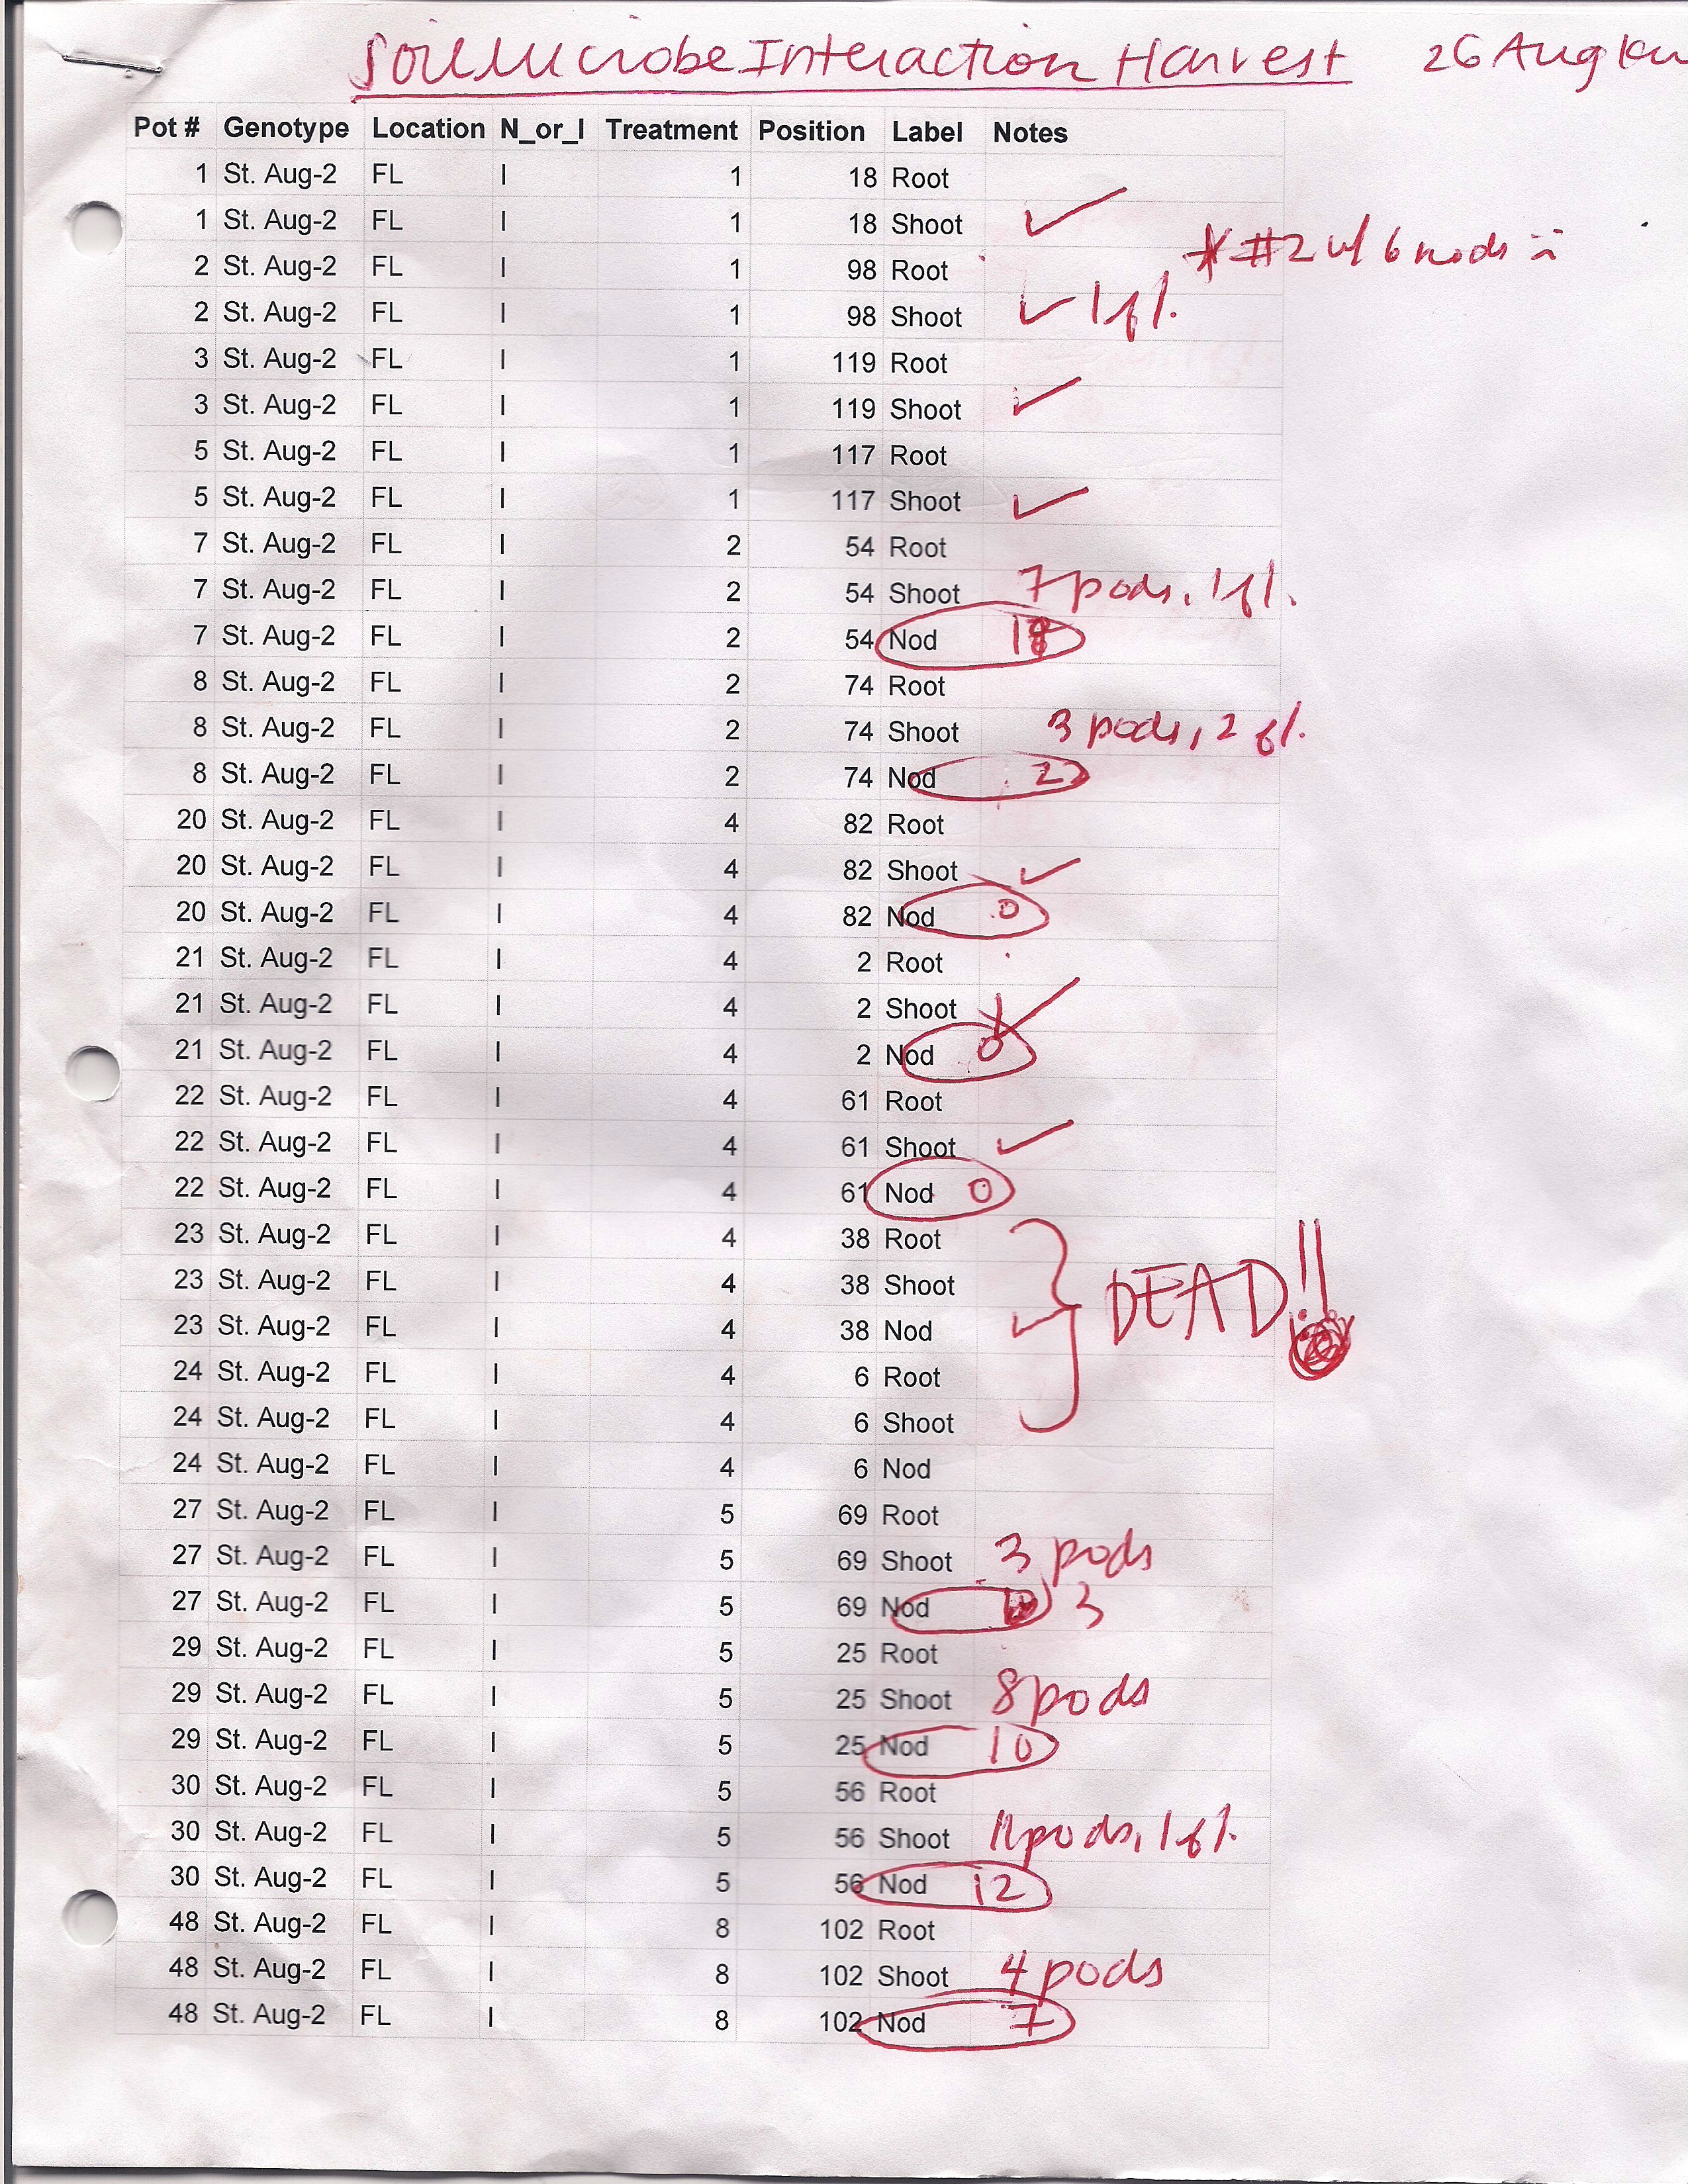 Soil Microbe Interaction Harvest 26 Aug
Pot # Genotype Location N_or_I Treatment Position Label Notes
1 St. Aug-2 FL I 1 18 Root
1 St. Aug-2 FL I 1 18 Shoot ✓
2 St. Aug-2 FL I 1 98 Root * #2 w/ 6 nods
2 St. Aug-2 FL I 1 98 Shoot ✓ 1 fl.
3 St. Aug-2 FL I 1 119 Root
3 St. Aug-2 FL I 1 119 Shoot ✓
5 St. Aug-2 FL I 1 117 Root
5 St. Aug-2 FL I 1 117 Shoot ✓
7 St. Aug-2 FL I 2 54 Root
7 St. Aug-2 FL I 2 54 Shoot 7 pods, 1 fl.
7 St. Aug-2 FL I 2 54 Nod 18
8 St. Aug-2 FL I 2 74 Root
8 St. Aug-2 FL I 2 74 Shoot 3 pods, 2 fl.
8 St. Aug-2 FL I 2 74 Nod 22
20 St. Aug-2 FL I 4 82 Root
20 St. Aug-2 FL I 4 82 Shoot ✓
20 St. Aug-2 FL I 4 82 Nod 0
21 St. Aug-2 FL I 4 2 Root
21 St. Aug-2 FL I 4 2 Shoot ✓
21 St. Aug-2 FL I 4 2 Nod 0
22 St. Aug-2 FL I 4 61 Root
22 St. Aug-2 FL I 4 61 Shoot ✓
22 St. Aug-2 FL I 4 61 Nod 0
23 St. Aug-2 FL I 4 38 Root
23 St. Aug-2 FL I 4 38 Shoot DEAD!!
23 St. Aug-2 FL I 4 38 Nod ✓
24 St. Aug-2 FL I 4 6 Root
24 St. Aug-2 FL I 4 6 Shoot
24 St. Aug-2 FL I 4 6 Nod
27 St. Aug-2 FL I 5 69 Root
27 St. Aug-2 FL I 5 69 Shoot 3 pods
27 St. Aug-2 FL I 5 69 Nod 3
29 St. Aug-2 FL I 5 25 Root
29 St. Aug-2 FL I 5 25 Shoot 8 pods
29 St. Aug-2 FL I 5 25 Nod 10
30 St. Aug-2 FL I 5 56 Root
30 St. Aug-2 FL I 5 56 Shoot 11 pods, 1 fl.
30 St. Aug-2 FL I 5 56 Nod 12
48 St. Aug-2 FL I 8 102 Root
48 St. Aug-2 FL I 8 102 Shoot 4 pods
48 St. Aug-2 FL I 8 102 Nod 7